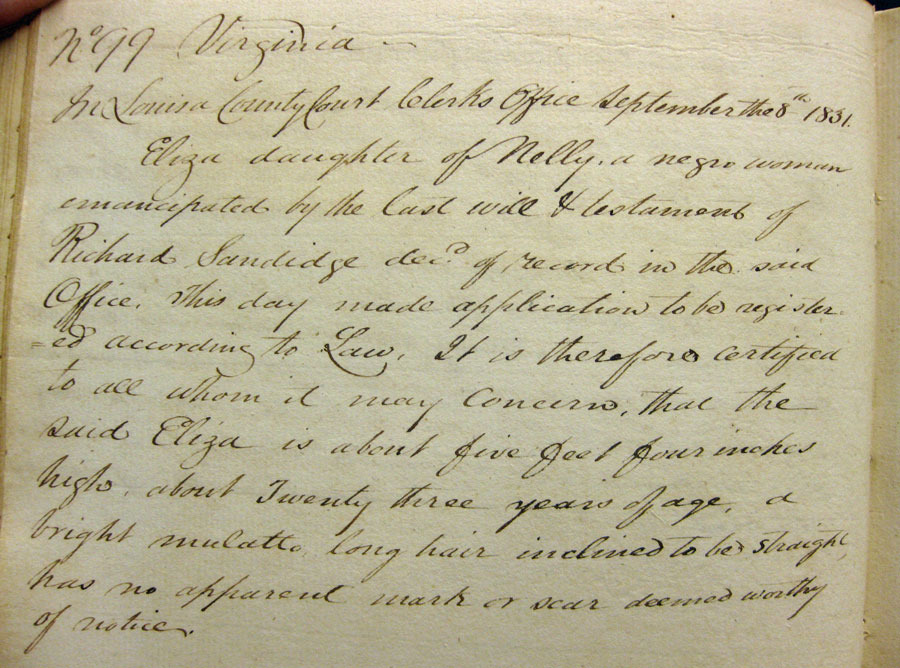 No 99 Virginia
In Louisa County Court Clerks Office September the 8th 1831.
Eliza daughter of Nelly, a negro woman
emancipated by the last will & testament of
Richard Sandidge decd. of record in the said
Office. This day made application to be register
=ed according to Law, It is therefore certified
to all whom it may Concern, that the
said Eliza is about five feet four inches
high, about Twenty three years of age, a
bright mulatto, long hair inclined to be straight,
has no apparent mark or scar deemed worthy
of notice.